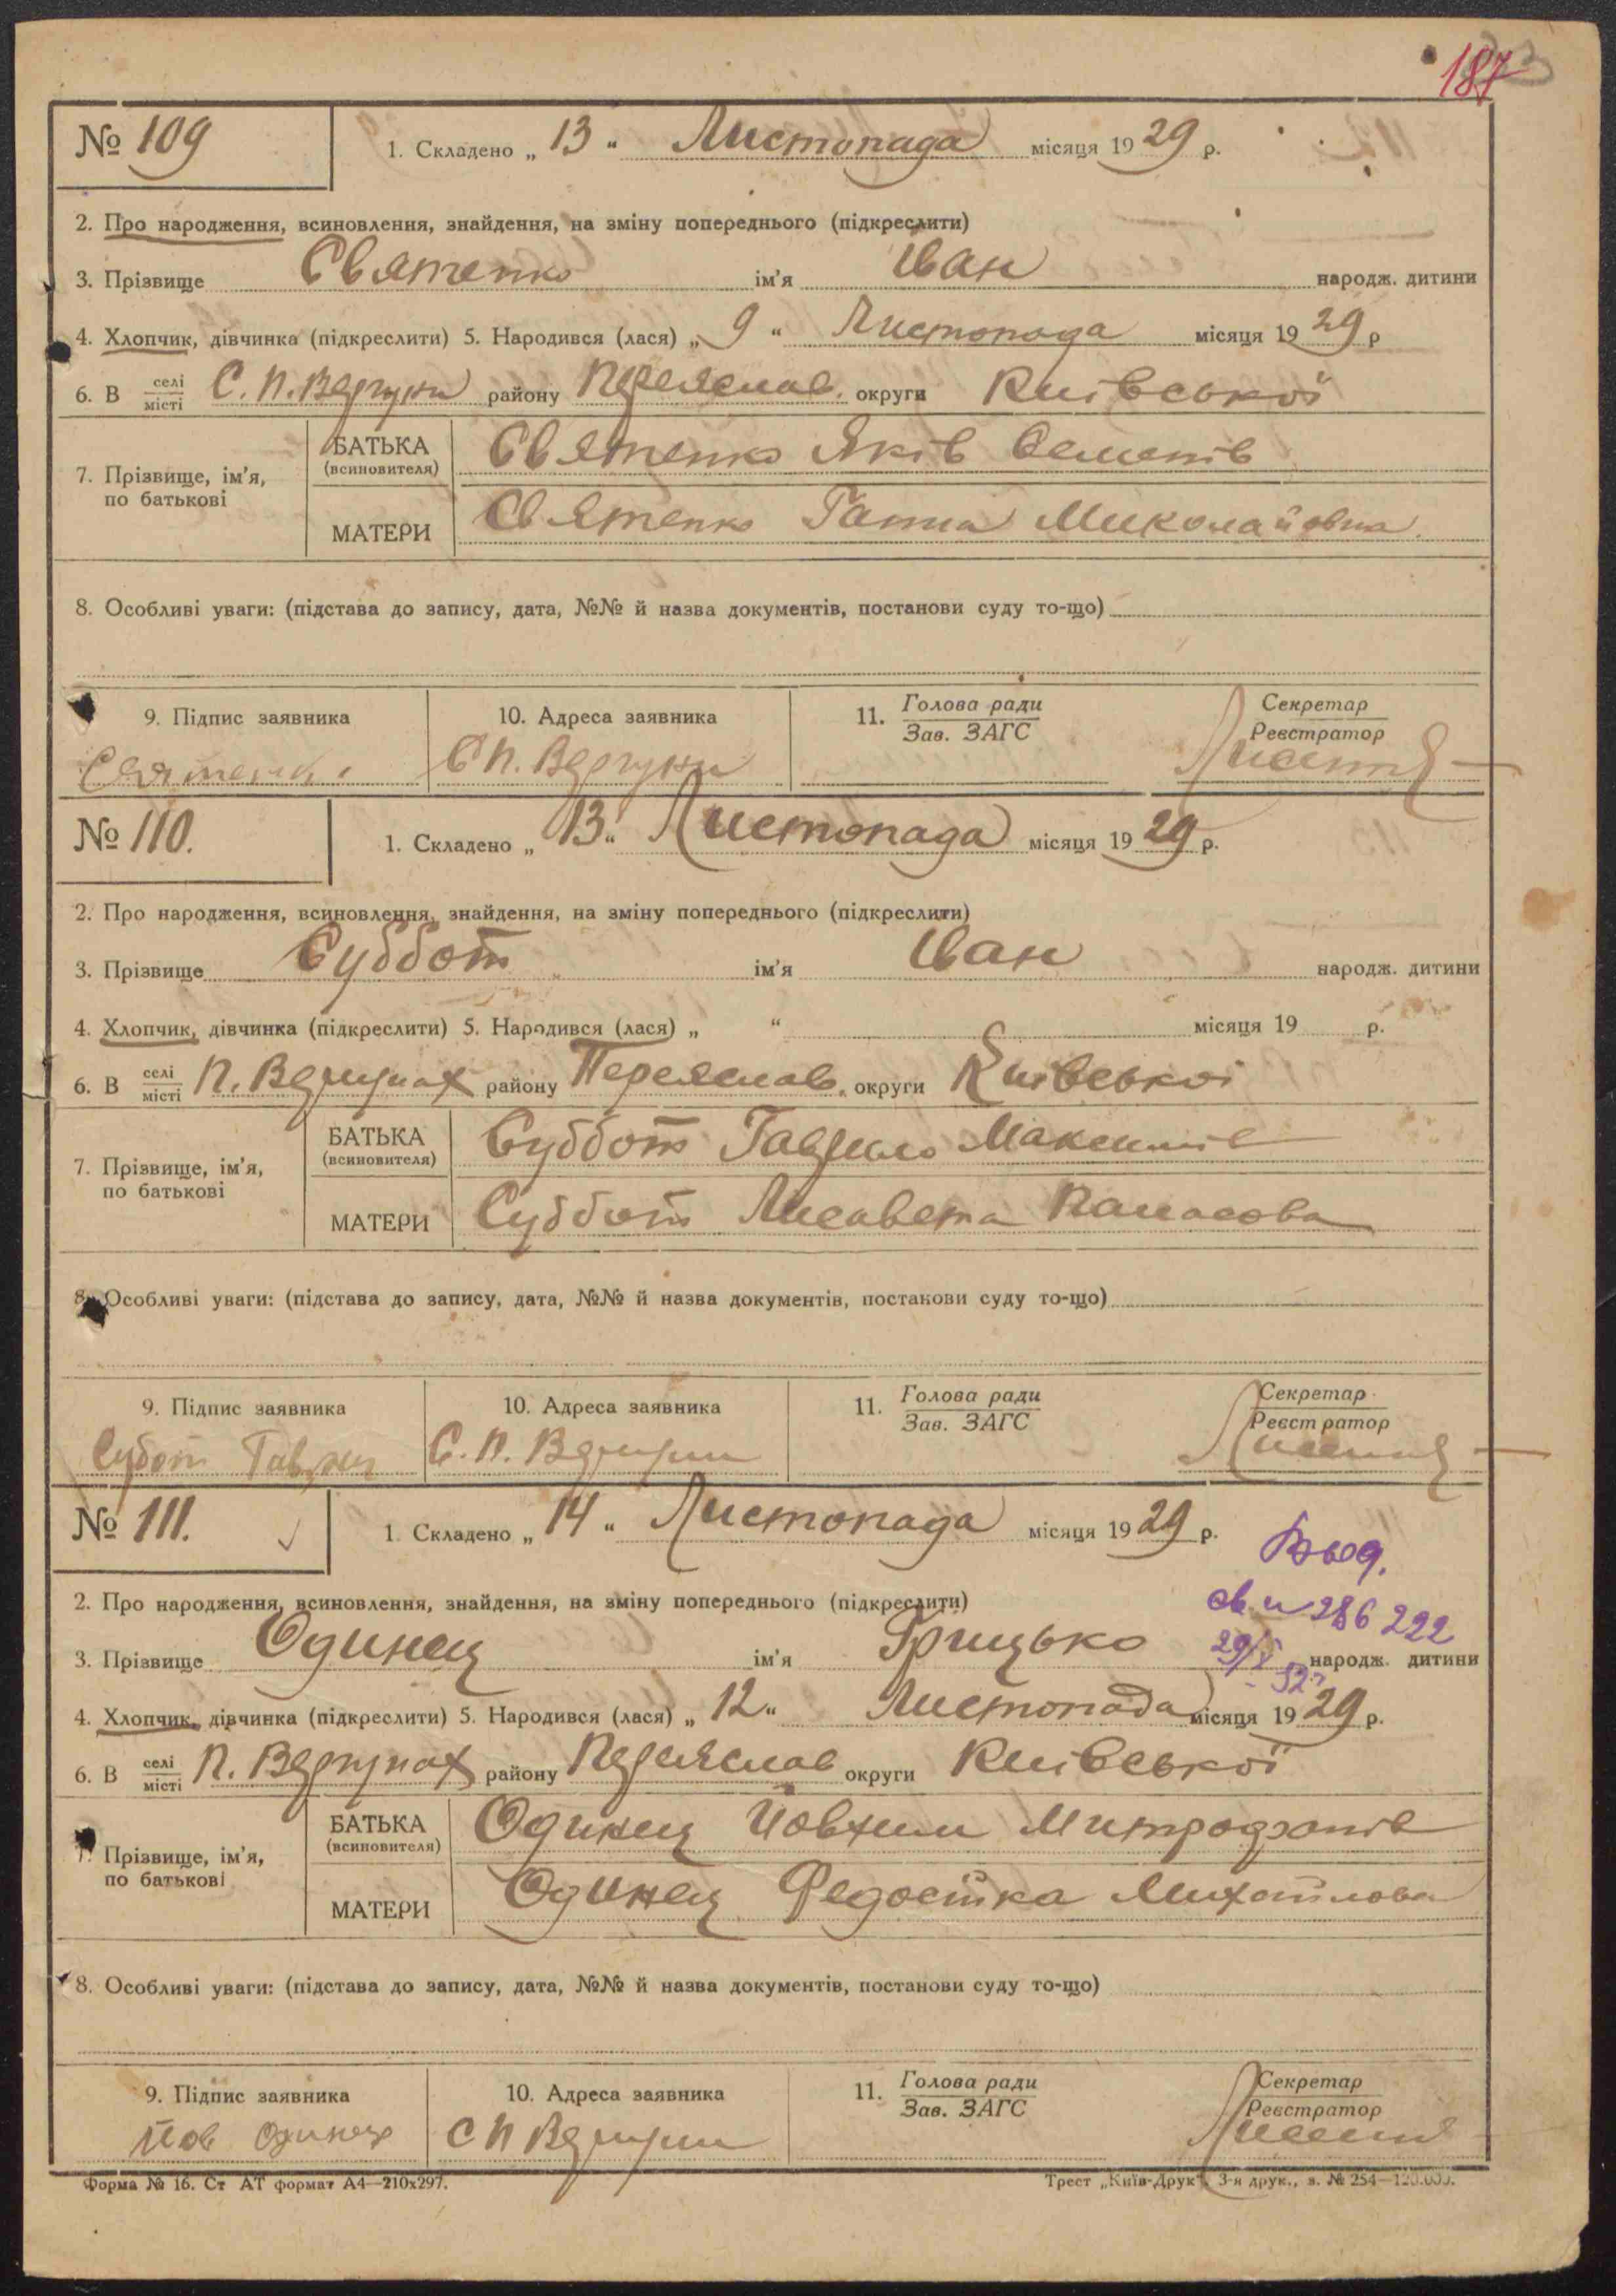 187
№ 109
1. Складено „ 13 “ Листопада місяця 1929 р.
2. Про народження, всиновлення, знайдення, на зміну попереднього (підкреслити)
3. Прізвище Святенко ім'я Іван народж. дитини
4. Хлопчик, дівчинка (підкреслити) 5. Народився (лася) „ 9 “ Листопада місяця 1929 р
6. В селі місті С. П. Вергуни району Переяслав. округи Київської
7. Прізвище, ім'я, по батькові
БАТЬКА (всиновителя) Святенко Яків Семенів
МАТЕРИ Святенко Ганна Миколайовна
8. Особливі уваги: (підстава до запису, дата, №№ й назва документів, постанови суду то-що)
9. Підпис заявника 10. Адреса заявника 11. Голова ради Зав. ЗАГС Секретар Реєстратор
Святенко С П. Вергуни
№ 110.
1. Складено „ 13 “ Листопада місяця 1929 р.
2. Про народження, всиновлення, знайдення, на зміну попереднього (підкреслити)
3. Прізвище Суббот ім'я Іван народж. дитини
4. Хлопчик, дівчинка (підкреслити) 5. Народився (лася) „ “ місяця 19 р.
6. В селі місті П. Вергунах району Переяслав. округи Київської
7. Прізвище, ім'я, по батькові
БАТЬКА (всиновителя) Суббот Гаврило Максимів
МАТЕРИ Суббот Лисавета Панасова
8. Особливі уваги: (підстава до запису, дата, №№ й назва документів, постанови суду то-що)
9. Підпис заявника 10. Адреса заявника 11. Голова ради Зав. ЗАГС Секретар Реєстратор
Субот С. П. Вергуни
№ 111.
1. Складено „ 14 “ Листопада місяця 1929 р.
2. Про народження, всиновлення, знайдення, на зміну попереднього (підкреслити)
св. и 286 222
3. Прізвище Одинец ім'я Грицько народж. дитини
29/X
4. Хлопчик, дівчинка (підкреслити) 5. Народився (лася) „ 12 “ Листопада місяця 1929 р.
6. В селі місті П. Вергунах району Переяслав округи Київської
7. Прізвище, ім'я, по батькові
БАТЬКА (всиновителя) Одинец Йовхим Митрофанів
МАТЕРИ Одинец Федоська Михайлова
8. Особливі уваги: (підстава до запису, дата, №№ й назва документів, постанови суду то-що)
9. Підпис заявника 10. Адреса заявника 11. Голова ради Зав. ЗАГС Секретар Реєстратор
Йов Одинец С П Вергуни
Форма № 16. Ст АТ формат А4—210x297. Трест „Київ-Друк“, 3-я друк., з. № 254—120.000.